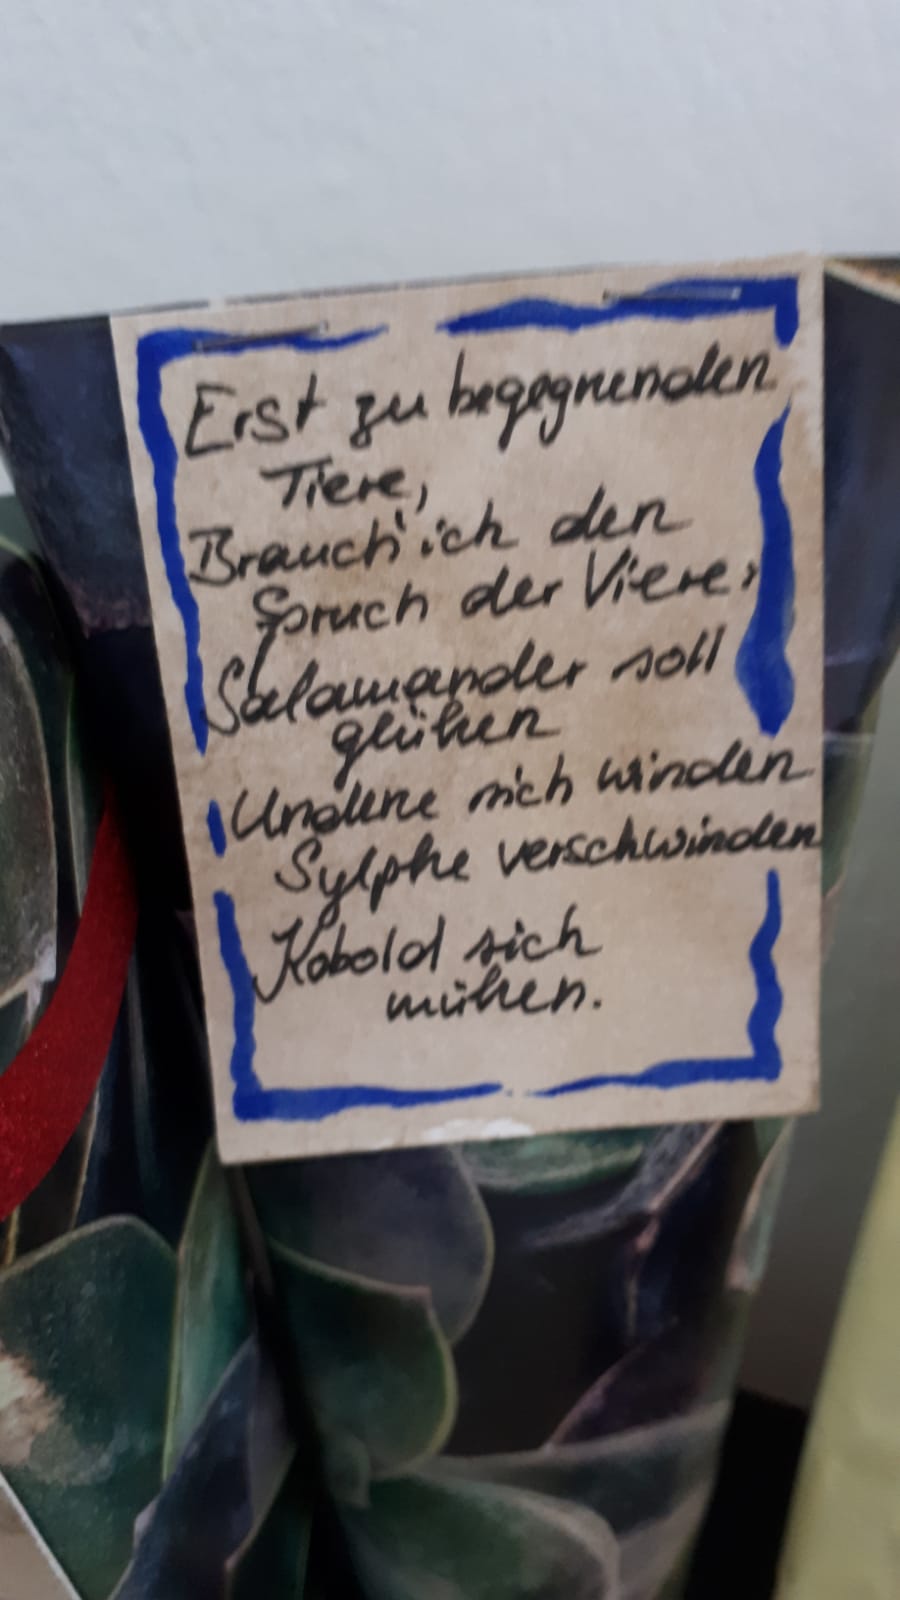 Erst zu begegnenden
Tiere,
Brauch' ich den
Spruch der Viere:
Salamander soll
glühen
Undene sich winden
Sylphe verschwinden
Kobold sich
mühen.